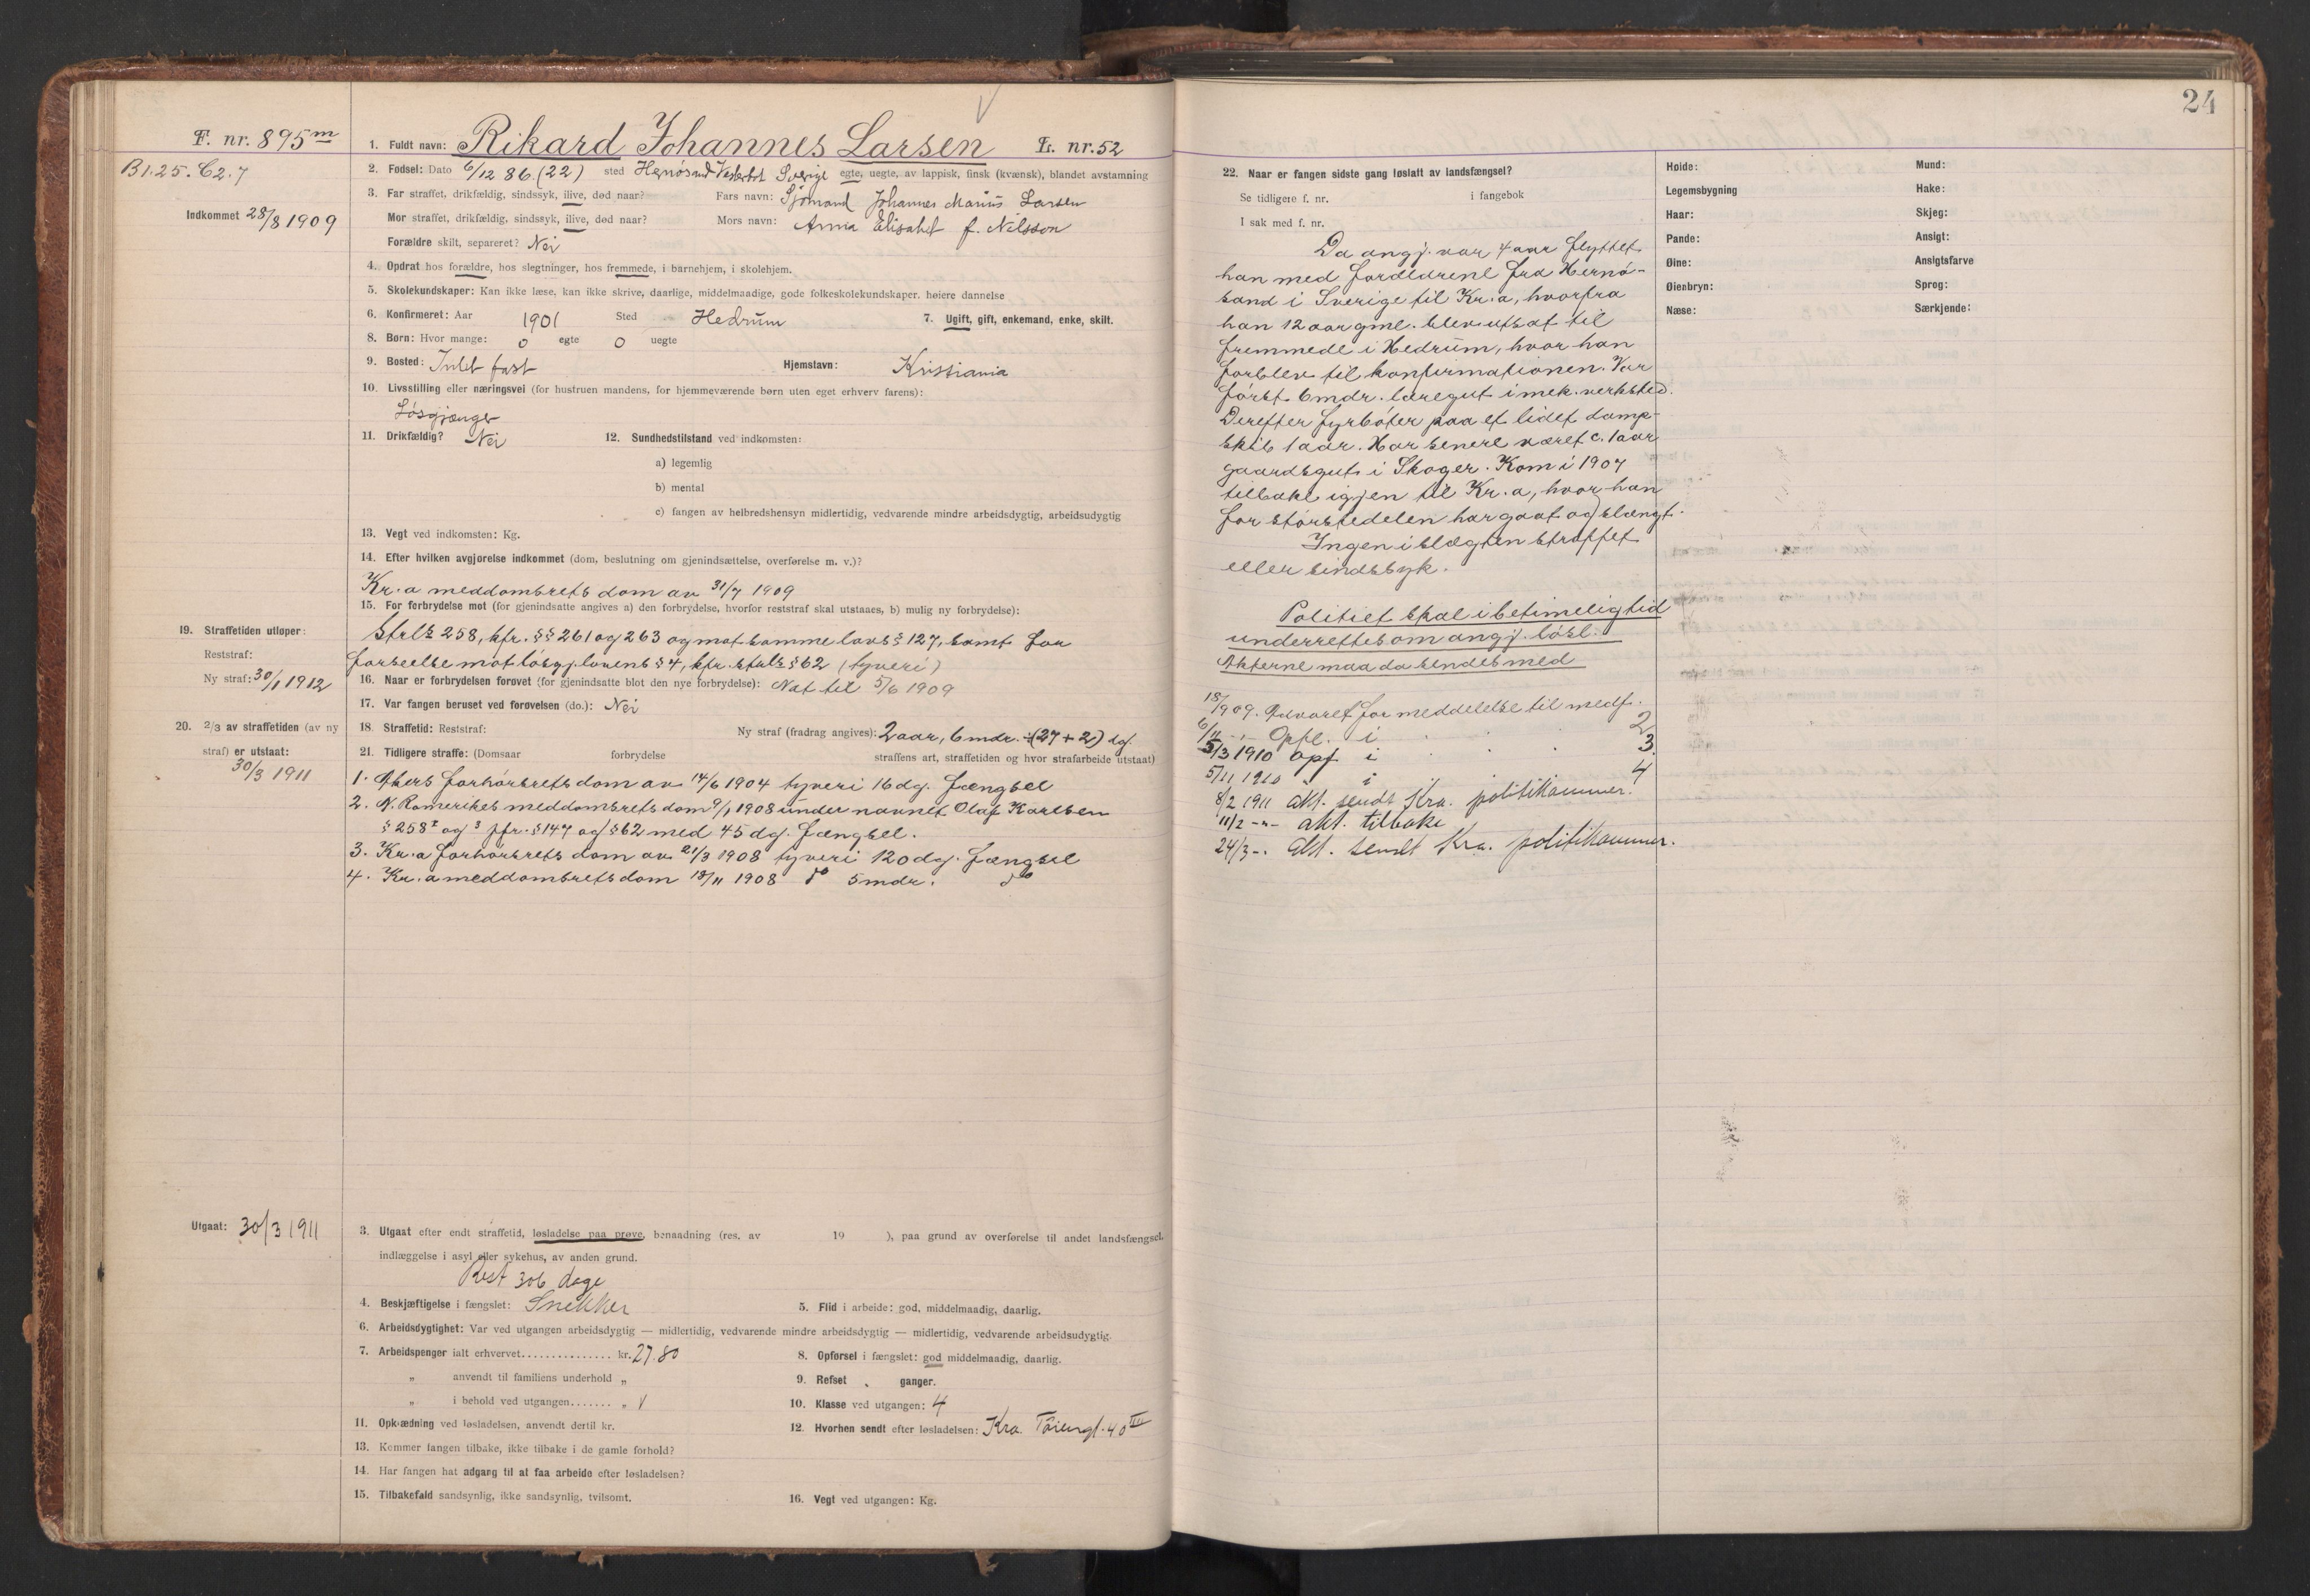 F. nr. 895 m
B1.25. C2.7
Indkommet 28/8 1909
1. Fuldt navn: Rikard Johannes Larsen L. nr. 52
2. Fødsel: Dato 6/12 86. (22) sted Hernösand Vesterbot Sverige egte, uegte, av lappisk, finsk (kvænsk), blandet avstamning
3. Far straffet, drikfældig, sindssyk, ilive, død naar? Fars navn: Sjømand Johannes Marius Larsen
Mor straffet, drikfældig, sindssyk, ilive, død naar? Mors navn: Anna Elisabet f. Nilsson
Forældre skilt, separeret? Nei
4. Opdrat hos forældre, hos slegtninger, hos fremmede, i barnehjem, i skolehjem.
5. Skolekundskaper: Kan ikke læse, kan ikke skrive, daarlige, middelmaadige, gode folkeskolekundskaper, høiere dannelse
6. Konfirmeret: Aar 1901 Sted Hedrum 7. Ugift, gift, enkemand, enke, skilt.
8. Børn: Hvor mange: 0 egte 0 uegte
9. Bosted: Intet fast Hjemstavn: Kristiania
10. Livsstilling eller næringsvei (for hustruen mandens, for hjemmeværende børn uten eget erhverv farens):
Løsgjænger
11. Drikfældig? Nei 12. Sundhedstilstand ved indkomsten:
a) legemlig
b) mental
c) fangen av helbredshensyn midlertidig, vedvarende mindre arbeidsdygtig, arbeidsudygtig
13. Vegt ved indkomsten: Kg.
14. Efter hvilken avgjørelse indkommet (dom, beslutning om gjenindsættelse, overførelse m. v.)?
Kr.a meddomsrets dom av 31/7 1909
15. For forbrydelse mot (for gjenindsatte angives a) den forbrydelse, hvorfor reststraf skal utstaaes, b) mulig ny forbrydelse):
Strls 258, kfr. §§ 261 og 263 og mot samme lovs § 127, samt for
forseelse mot løsgj.lovens § 4, kfr. strls § 62 (tyveri)
16. Naar er forbrydelsen forøvet (for gjenindsatte blot den nye forbrydelse): Nat til 5/6 1909
17. Var fangen beruset ved forøvelsen (do.): Nei
18. Straffetid: Reststraf: Ny straf (fradrag angives): 2 aar, 6 mdr. ÷ (27 + 2) dg.
19. Straffetiden utløper:
Reststraf:
Ny straf: 30/1 1912
20. 2/3 av straffetiden (av ny
straf) er utstaat:
30/3 1911
21. Tidligere straffe: (Domsaar forbrydelse straffens art, straffetiden og hvor strafarbeide utstaat)
1. Akers forhørsrets dom av 14/6 1904 tyveri 16 dg. fængsel
2. N. Romerikes meddomsrets dom 9/1 1908 under navnet Olaf Karlsen
§ 258 1 og 3 jfr. § 147 og § 62 med 45 dg. fængsel.
3. Kr.a forhørsrets dom av 21/3 1908 tyveri 120 dg. fængsel
4. Kr.a meddomsrets dom 18/11 1908 do 5 mdr. do
Utgaat: 30/3 1911
3. Utgaat efter endt straffetid, løsladelse paa prøve, benaadning (res. av 19 ), paa grund av overførelse til andet landsfængsel,
indlæggelse i asyl eller sykehus, av anden grund.
Rest 306 dage
4. Beskjæftigelse i fængslet: Snekker 5. Flid i arbeide: god, middelmaadig, daarlig.
6. Arbeidsdygtighet: Var ved utgangen arbeidsdygtig — midlertidig, vedvarende mindre arbeidsdygtig — midlertidig, vedvarende arbeidsudygtig.
7. Arbeidspenger ialt erhvervet............... kr. 27.80 8. Opførsel i fængslet: god middelmaadig, daarlig.
„ anvendt til familiens underhold „ 9. Refset ganger.
„ i behold ved utgangen....... „ 10. Klasse ved utgangen: 4
11. Opklædning ved løsladelsen, anvendt dertil kr. 12. Hvorhen sendt efter løsladelsen: Kra. Töiengt. 40 III
13. Kommer fangen tilbake, ikke tilbake i de gamle forhold?
14. Har fangen hat adgang til at faa arbeide efter løsladelsen?
15. Tilbakefald sandsynlig, ikke sandsynlig, tvilsomt. 16. Vegt ved utgangen: Kg.
24
22. Naar er fangen sidste gang løslatt av landsfængsel?
Se tidligere f. nr. i fangebok
I sak med f. nr.
Da angj. var 4 aar flyttet
han med forældrene fra Hernö-
sand i Sverige til Kr.a, hvorfra
han 12 aar gml. blev utsat til
fremmede i Hedrum, hvor han
forblev til konfirmationen. Var
først 6 mdr. læregut i mek. verksted.
Derefter fyrbøter paa et lidet damp-
skib 1 aar. Har senere været c. 1 aar
gaardsgut i Skoger. Kom i 1907
tilbake igjen til Kr.a, hvor han
for størstedelen har gaat og slængt.
Ingen i slægten straffet
eller sindssyk.
Politiet skal i betimelig tid
underrettes om angj. løsl.
Akterne maa da sendes med
18/9 09. Advaret for meddelelse til medf.
6/11 -"- Opfl. i 2
5/3 1910 opf. i 3.
5/11 1910 " i 4
8/2 1911 akt. sendt Kra. politikammer.
11/2 -"- akt. tilbake
24/3 -. akt. sendt Kra. politikammer.
Høide: Mund:
Legemsbygning Hake:
Haar: Skjeg:
Pande: Ansigt:
Øine: Ansigtsfarve
Øienbryn: Sprog:
Næse: Særkjende: